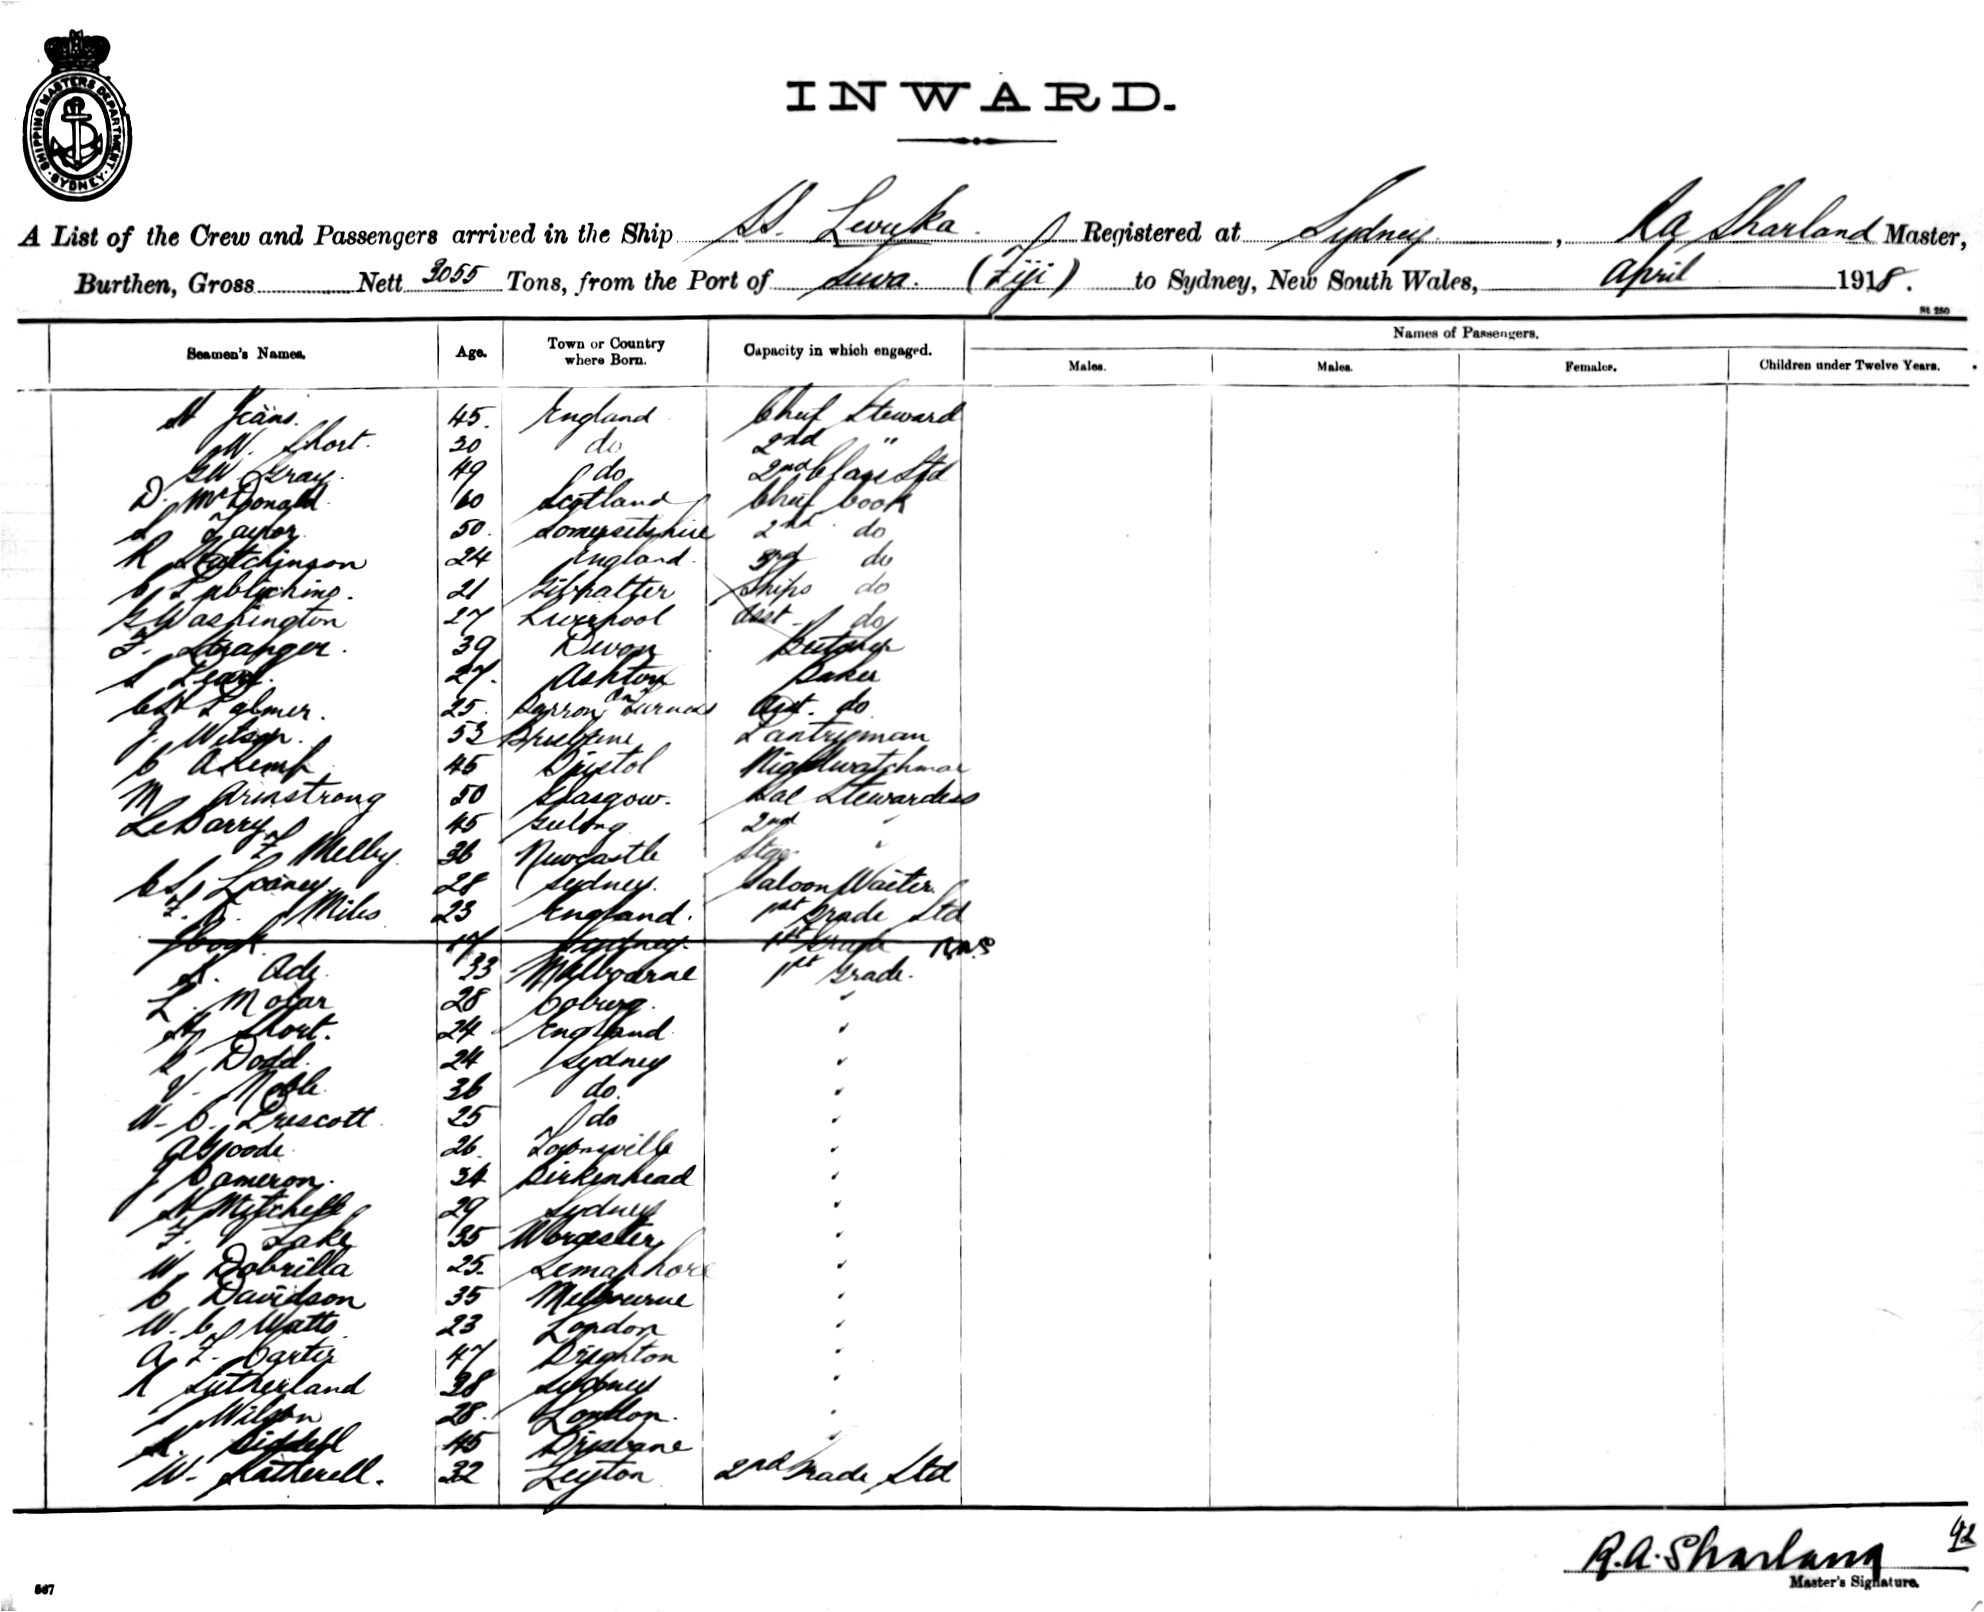 SHIPPING MASTERS DEPARTMENT SYDNEY
INWARD.
A List of the Crew and Passengers arrived in the Ship SS. Levuka. Registered at Sydney, RA Sharland Master,
Burthen, Gross Nett 3055 Tons, from the Port of Suva. (Fiji) to Sydney, New South Wales, April 1918.
St 250
Seamen's Names. Age. Town or Country where Born. Capacity in which engaged. Names of Passengers.
Males. Males. Females. Children under Twelve Years.
H Jeans. 45. England Chief Steward
W. Short. 30 do 2nd "
GW Gray. 49 do 2nd Class Std
D. McDonald. 60 Scotland Chief Cook
S Taylor. 50. Somersetshire 2nd do
R Hutchinson 24 England. 3rd do
C 21 Gibraltar Ships do
G Washington 27 Liverpool Asst do
F. Stranger. 39 Devon Butcher
S 27. Ashton Baker
CH Palmer. 25. Barron in Furness Asst. do
J. Wilson. 53 Brisbane Pantryman
C A Kemp 45 Bristol Nightwatchman
M Armstrong 50 Glasgow. Sal Stewardess
L Barry 45 Geelong 2nd "
F Melby. 36 Newcastle "
C S Looney 28 Sydney. Saloon Waiter.
F. Miles 23 England. 1st Grade Std
J Cook 17 Sydney. 1st Grade
Ade. 33 Melbourne 1st Grade.
L. Molar 28 Coburg. "
H Short. 24 England. "
Dodd. 24 Sydney "
V. Noble 36 do. "
W. C. Prescott. 25 do "
A Goode. 26. Townsville "
J Cameron. 34 Birkenhead "
H Mitchell 29 Sydney "
F. Lake 35 Worcester "
W Dobrilla 25. Semaphore "
C Davidson 35 Melbourne "
W. C Watts 23 London "
A F. Carter 47 Brighton "
R Sutherland 38 Sydney "
S Wilson 28. London. "
Siddell 45 Brisbane "
W. Hatherell. 32 Leyton 2nd Grade Std
R.A. Sharland
Master's Signature.
567